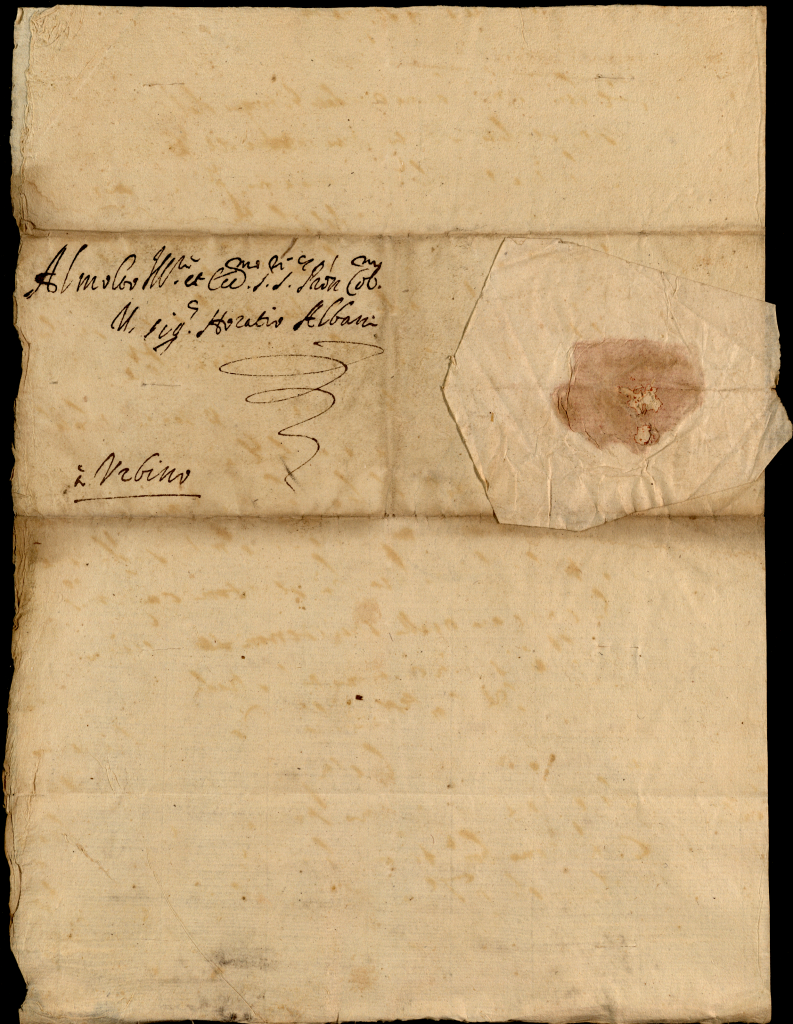 Al molto Ill.re et Ecc.mo S.r S.r P.ron Col.mo
Il Sig.r Horatio Albani
à Urbino